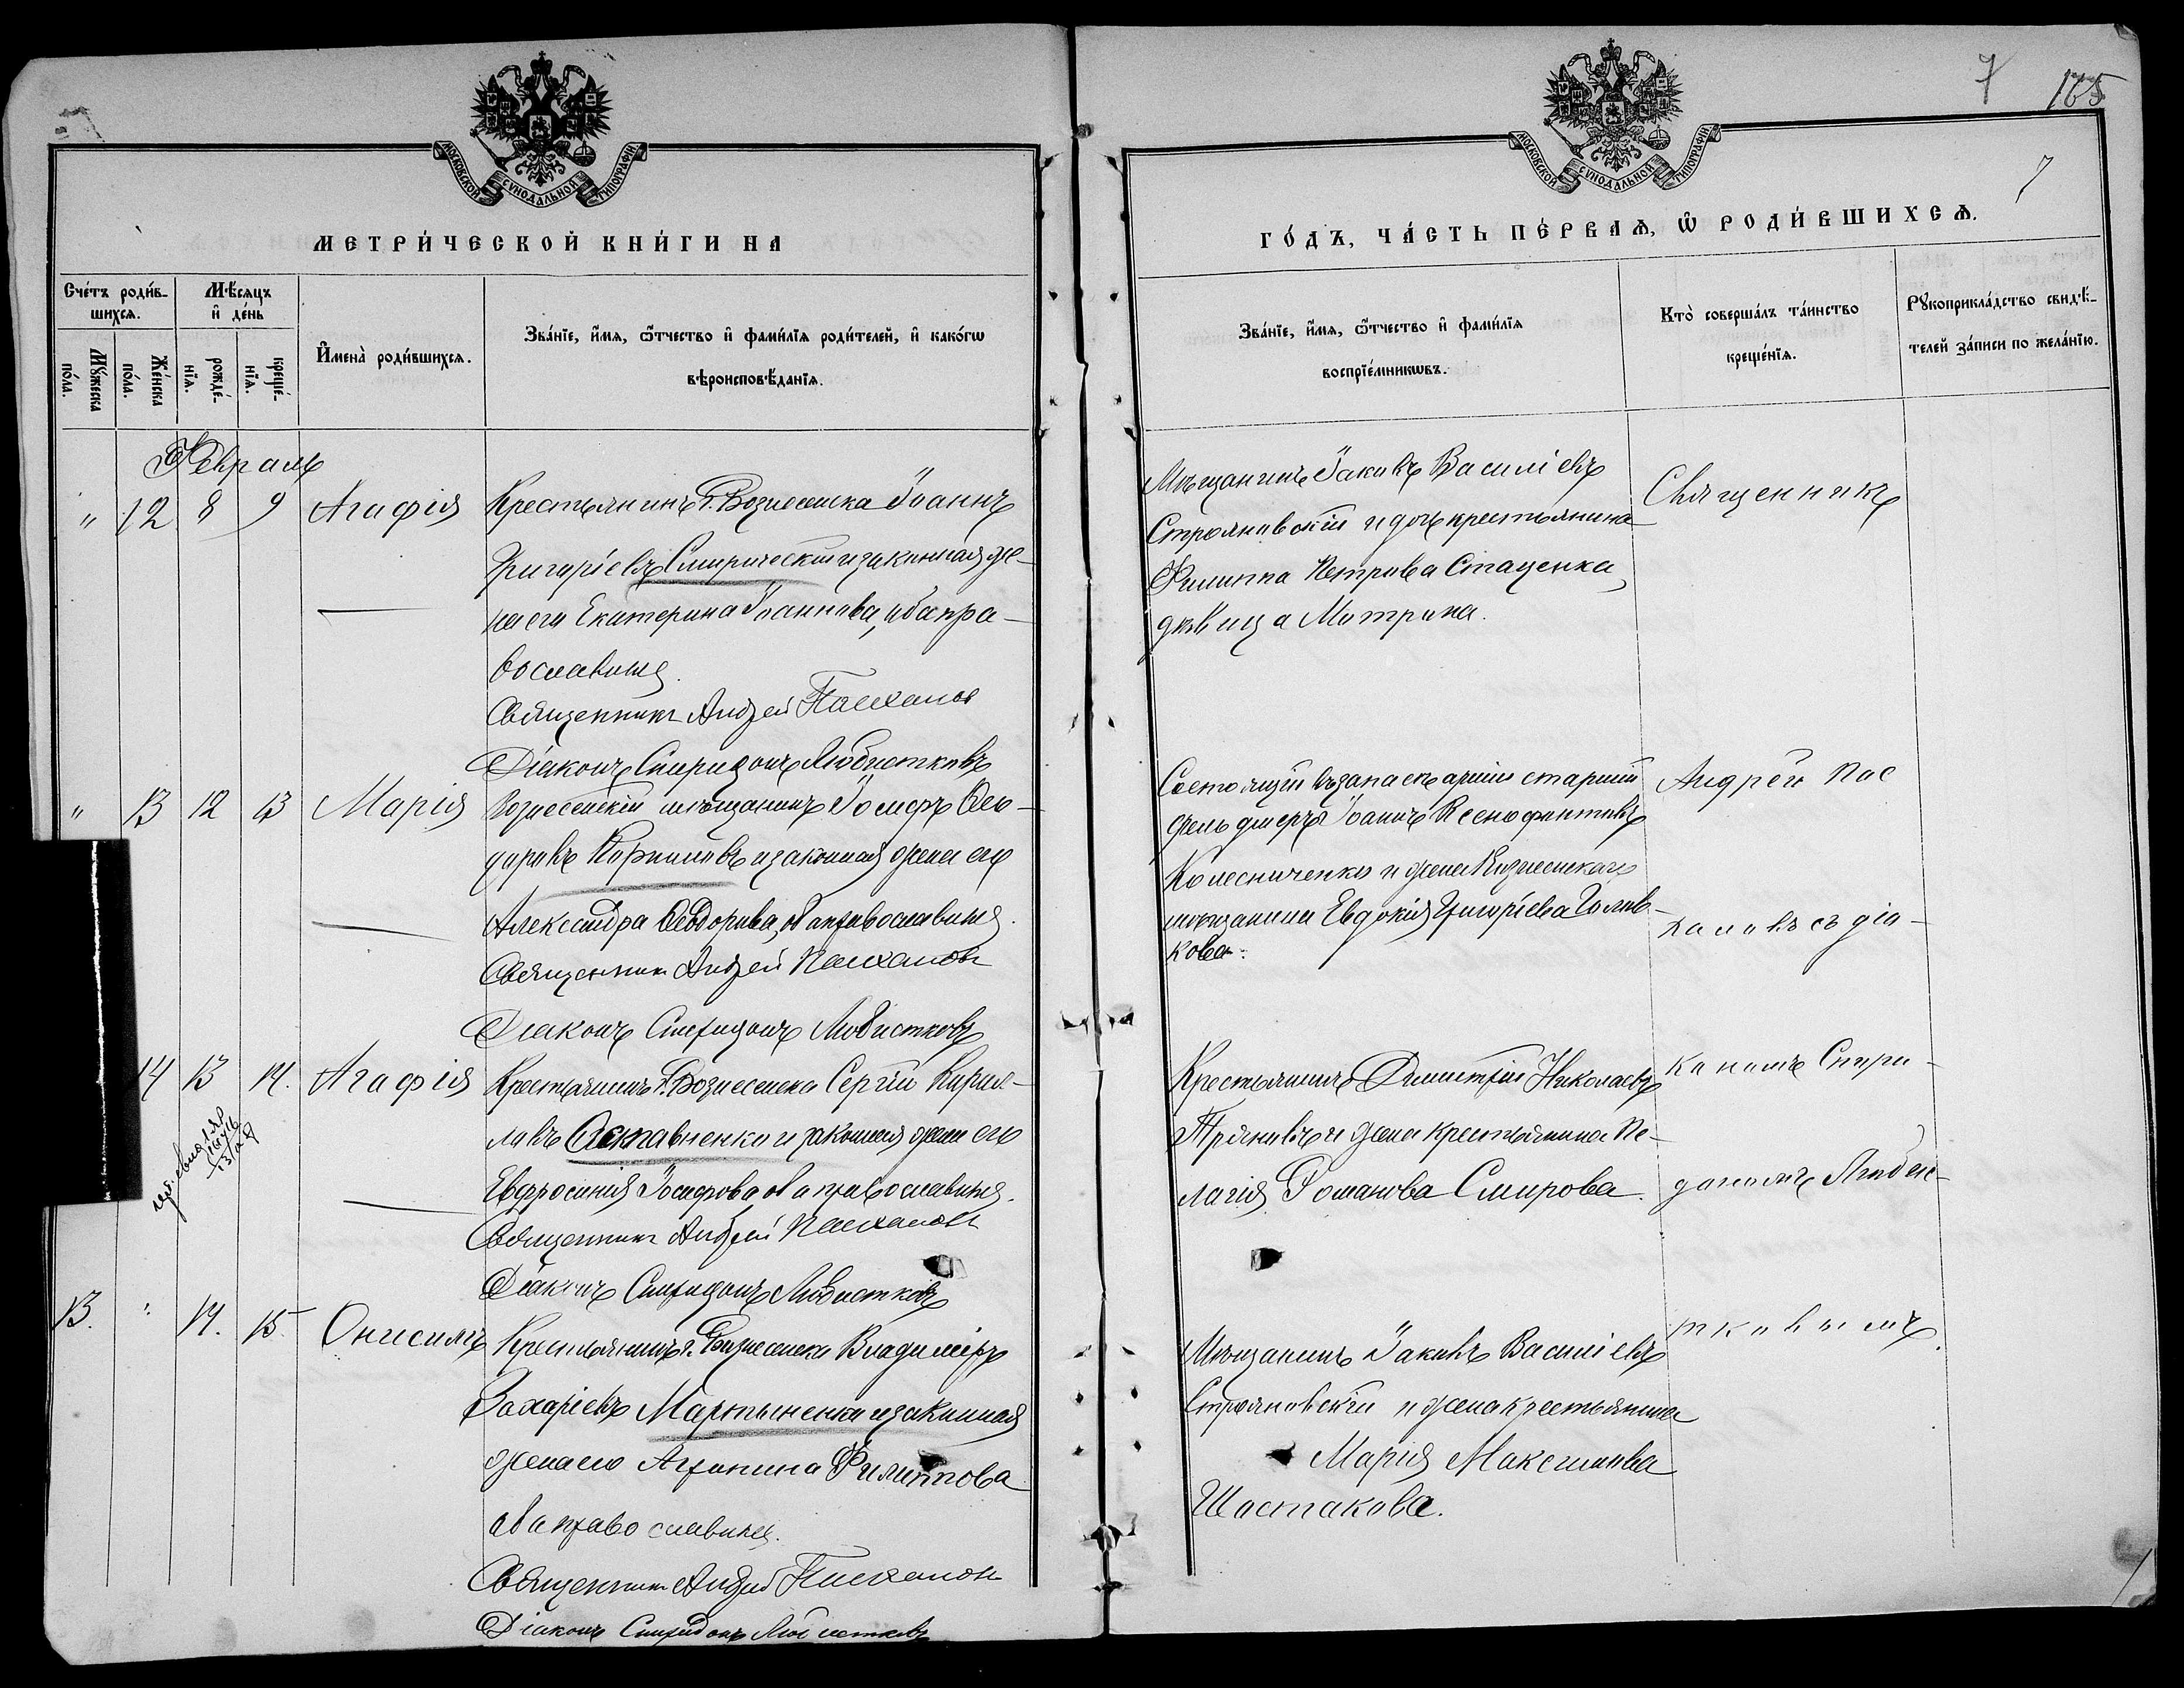 МОСКОВСКОЙ СѴНОДАЛЬНОЙ ТИПОГРАФІИ
МЕТРИ́ЧЕСКОЙ КНИ́ГИ НА
Сче́тъ роди́в-
шихсѧ.
Мѣ́сѧцъ
и҆ де́нь
Мꙋ́жеска
по́ла.
Же́нска
по́ла.
рожде́-
нїѧ.
креще́-
нїѧ.
И҆мена̀ роди́вшихсѧ.
Зва́нїе, и҆́мѧ, ѻ҆́тчество и҆ фами́лїѧ роди́телей, и҆ како́гѡ
вѣроисповѣ́данїѧ.
Февраль
" 12 8 9 Агафія Крестьянинъ г. Вознесенска Іоаннъ
Григоріевъ и законная же-
на его Екатерина Іоаннова, оба пра-
вославные.
Священникъ Андрей Пасхаловъ
Діаконъ Спиридонъ Любистковъ
" 13 12 13 Марія Вознесенскій мѣщанинъ Іосифъ Ѳео-
доровъ Корниловъ и законная жена его
Александра Ѳеодорова, оба православные.
Священникъ Андрей Пасхаловъ
Діаконъ Спиридонъ Любистковъ
14 13 14. Агафія Крестьянинъ г. Вознесенска Сергій Кирил-
ловъ Оставненко и законная жена его
Евфросинія Іосифова оба православные.
Священникъ Андрей Пасхаловъ
Діаконъ Спиридонъ Любистковъ
13. " 14. 15. Онисимъ Крестьянинъ г. Вознесенска Владиміръ
Захаріевъ Мартыненко и законная
жена его Агрипина Филиппова
оба православные.
Священникъ Андрей Пасхаловъ
Діаконъ Спиридонъ Любистковъ
7 165
МОСКОВСКОЙ СѴНОДАЛЬНОЙ ТИПОГРАФІИ
7
ГО́ДЪ, ЧА́СТЬ ПЕ́РВАѦ, Ѽ РОДИ́ВШИХСѦ.
Зва́нїе, и҆́мѧ, ѻ҆́тчество и҆ фами́лїѧ
воспрїе́мникѡвъ.
Кто̀ соверша́лъ та́инство
креще́нїѧ.
Рꙋкоприкла́дство свидѣ́-
телей за́писи по жела́нїю.
Мѣщанинъ Іаковъ Василіевъ
Строяновскій и дочь крестьянина
Филиппа Петрова Стаценка,
дѣвица Мотрона.
Священникъ
Состоящій въ запасѣ арміи старшій
фельдшеръ Іоаннъ Ксенофонтовъ
Колесниченко и жена Вознесенскаго
мѣщанина Евдокія Григоріева Голив-
кова.
Андрей Пас
халовъ съ діа-
Крестьянинъ Димитрій Николаевъ
Трояновъ и жена крестьянина Пе-
лагія Романова Смирова.
кономъ Спири-
дономъ Любис-
Мѣщанинъ Іаковъ Василіевъ
Строяновскій и жена крестьянина
Марія Максимова
Шостакова.
тковымъ.